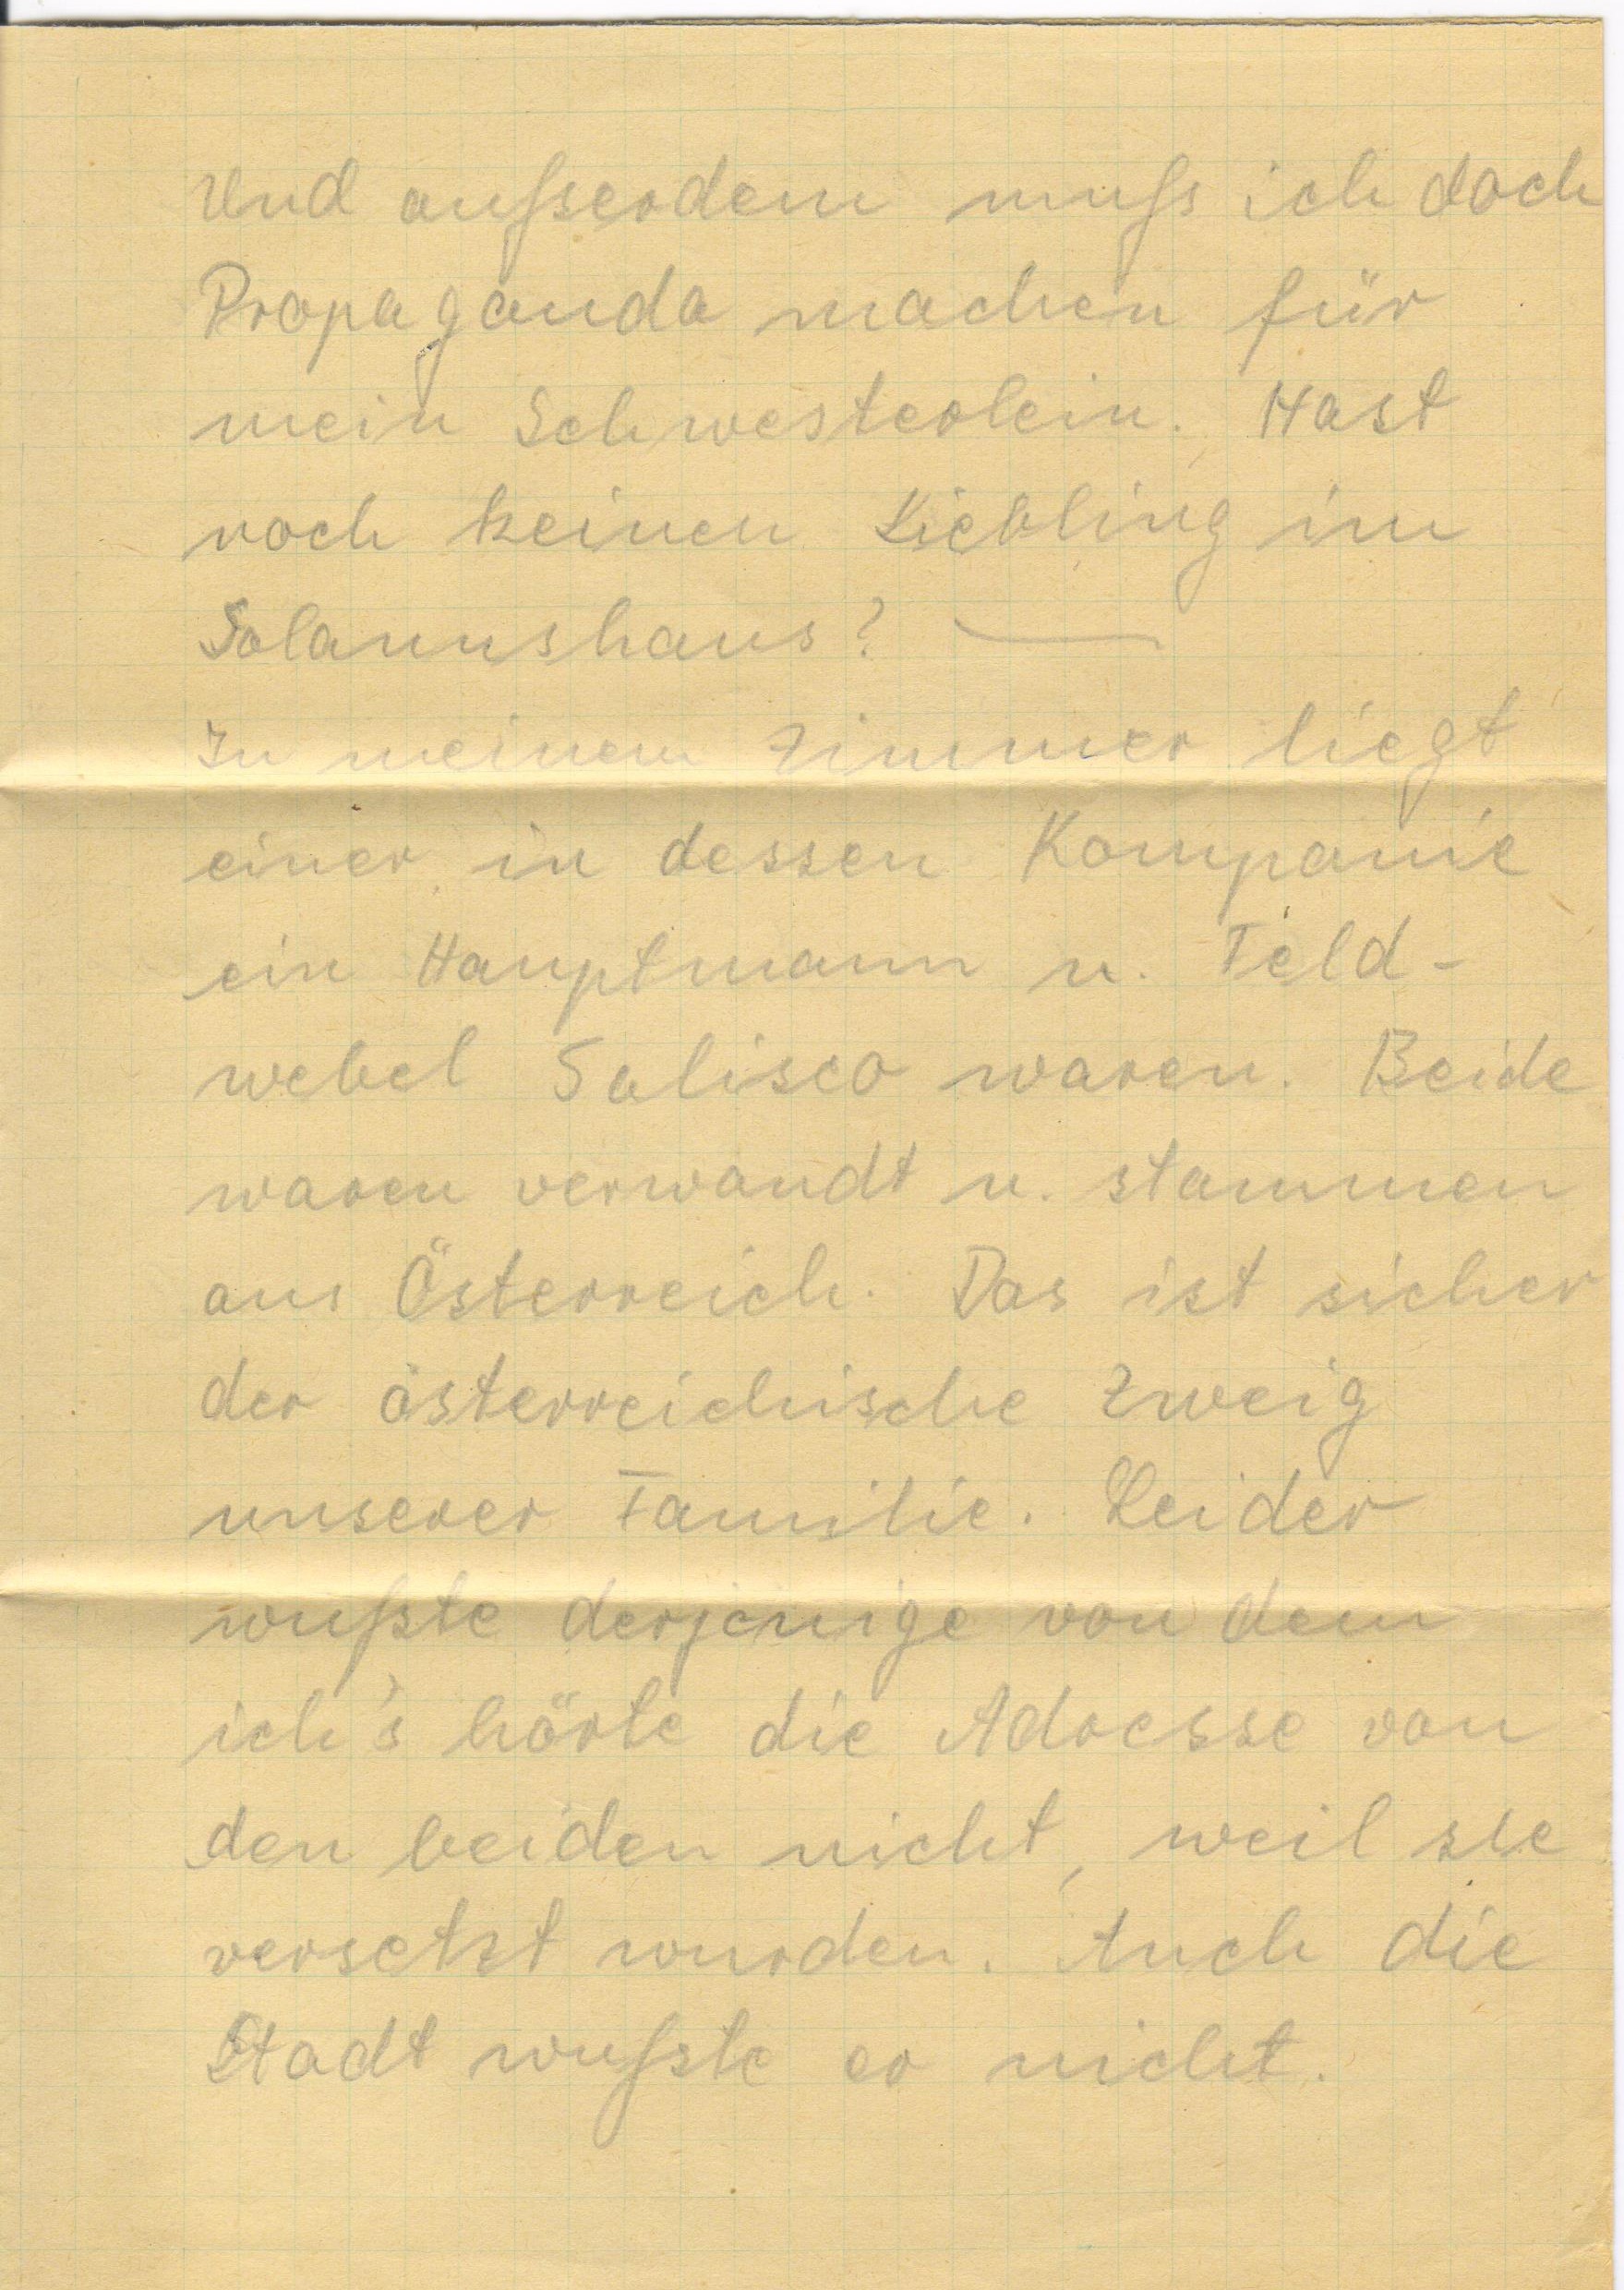 Und außerdem muß ich doch
Propaganda machen für
mein Schwesterlein. Hast
noch keinen Liebling im
Solanushaus? —
In meinem Zimmer liegt
einer, in dessen Kompanie
ein Hauptmann u. Feld-
webel Salisco waren. Beide
waren verwandt u. stammen
aus Österreich. Das ist sicher
der österreichische Zweig
unserer Familie. Leider
wußte derjenige von dem
ich's hörte die Adresse von
den beiden nicht, weil sie
versetzt wurden. Auch die
Stadt wußte er nicht.